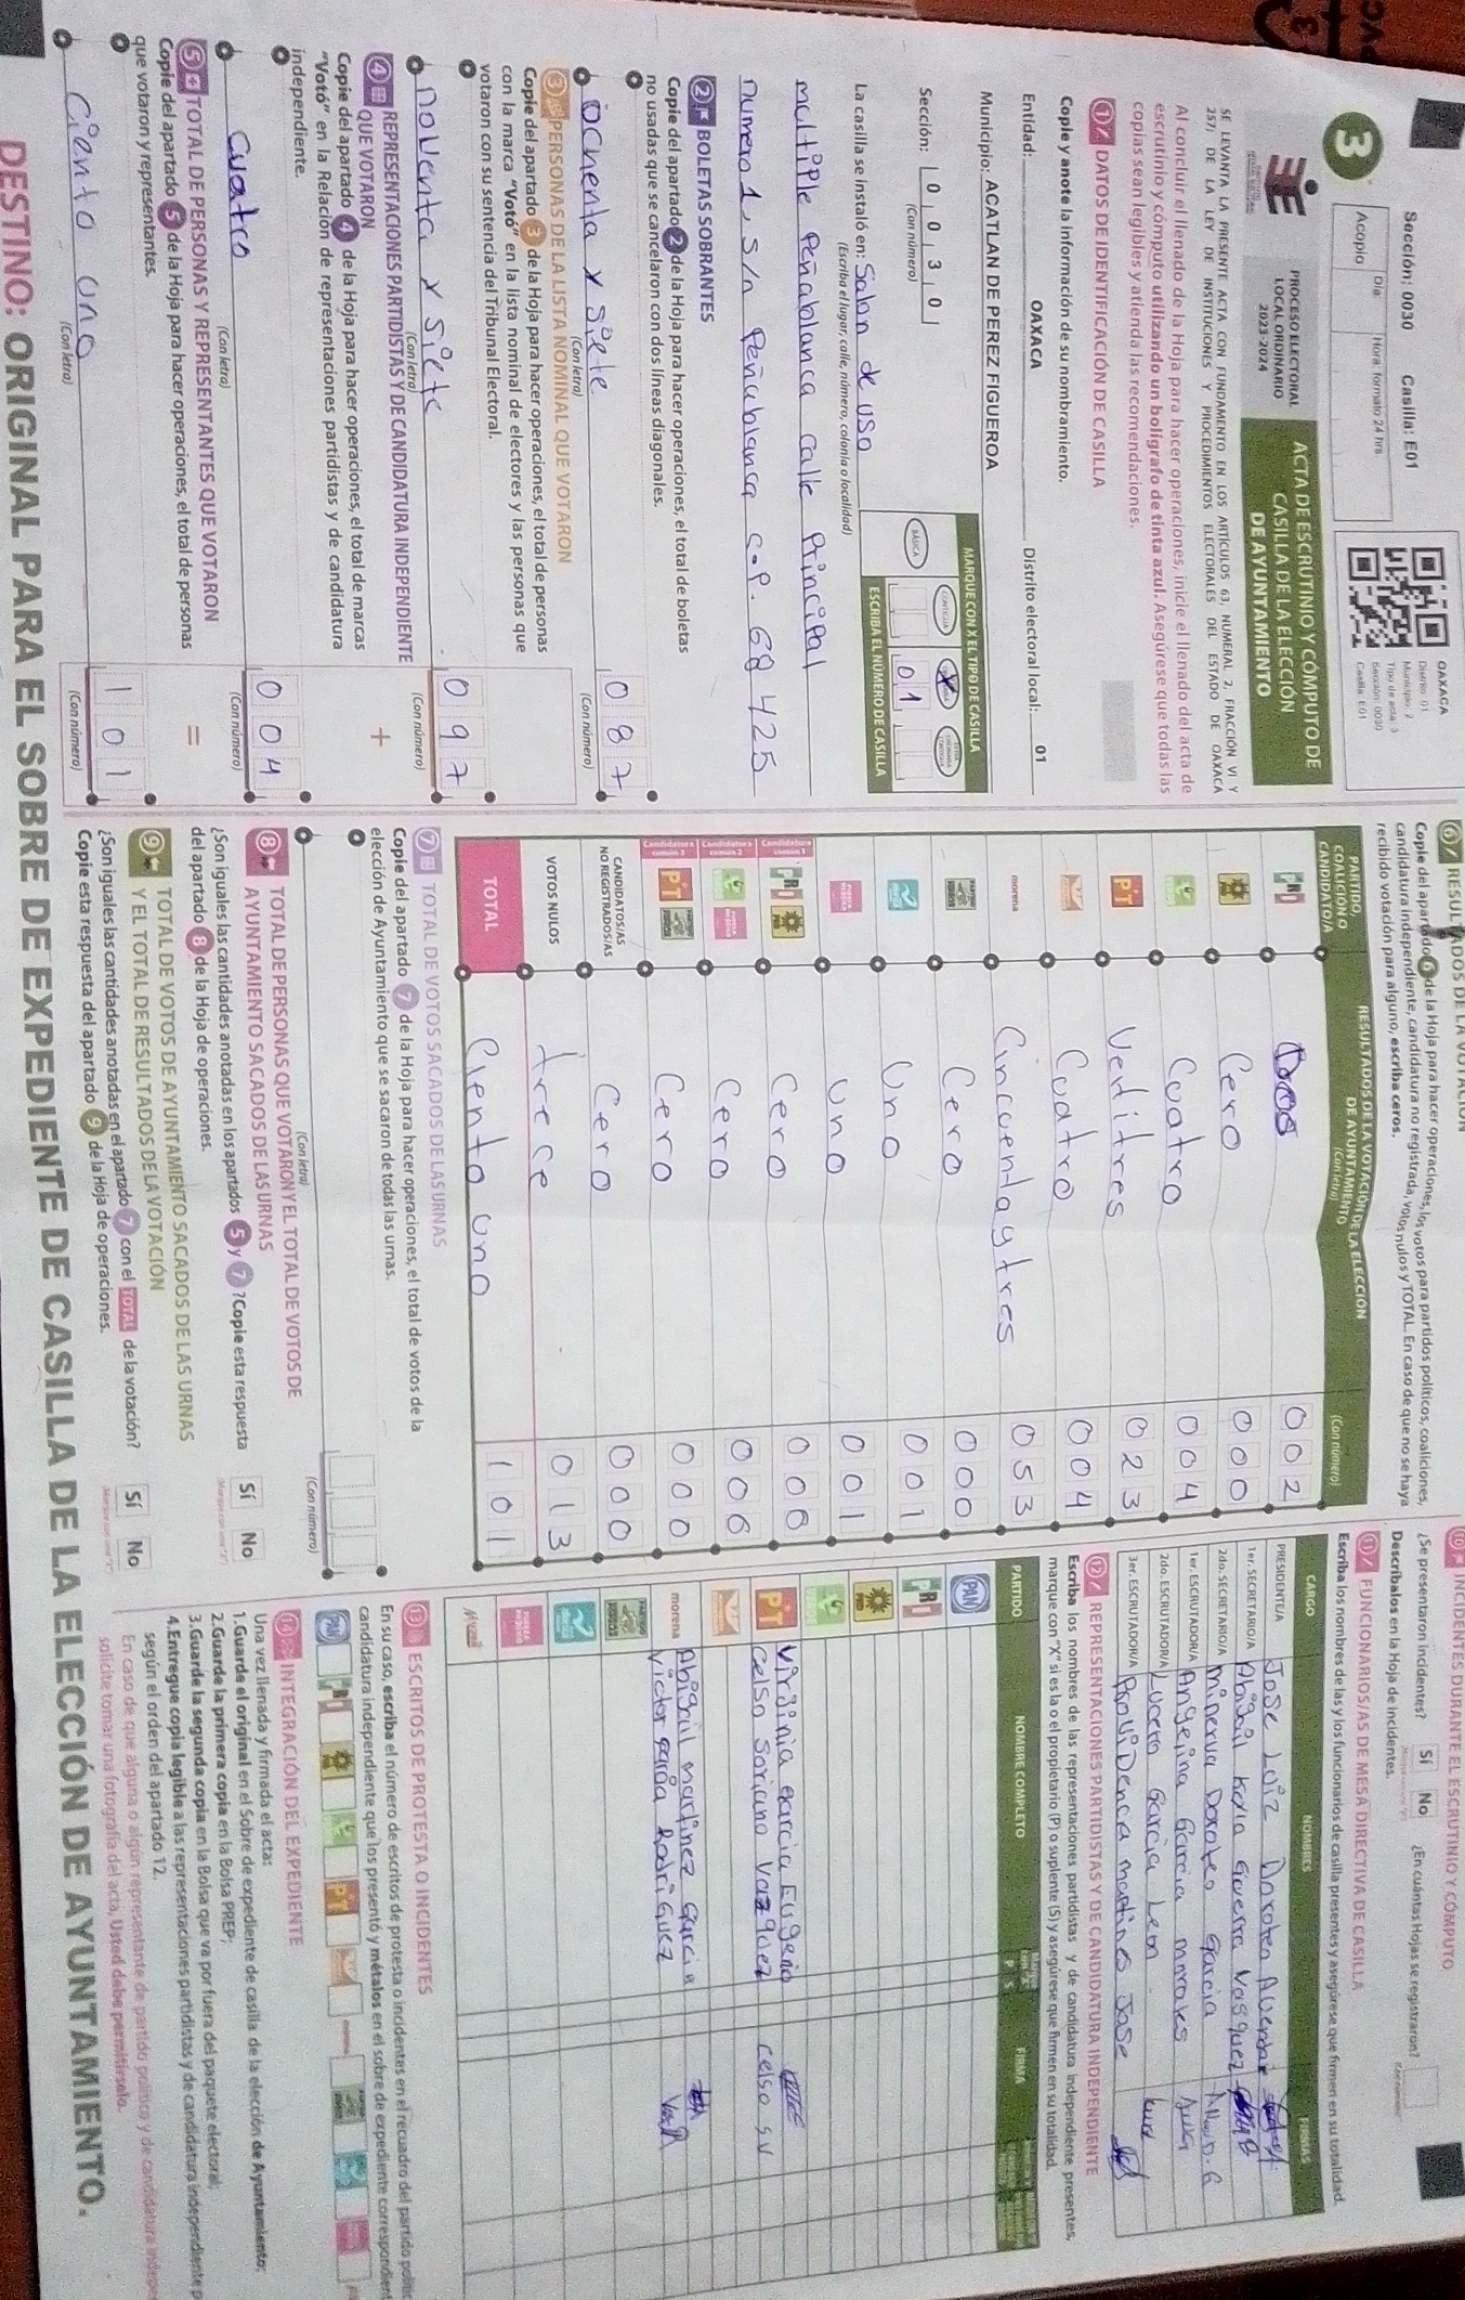 Sección: 0030 Casilla: E01
Acopio
Día:
Hora: formato 24 hrs
OAXACA
Distrito: 01
Municipio: 2
Tipo de acta: 3
Sección: 0030
Casilla: E01
3
PROCESO ELECTORAL
LOCAL ORDINARIO
2023-2024
ACTA DE ESCRUTINIO Y CÓMPUTO DE
CASILLA DE LA ELECCIÓN
DE AYUNTAMIENTO
SE LEVANTA LA PRESENTE ACTA CON FUNDAMENTO EN LOS ARTÍCULOS 63, NUMERAL 2, FRACCIÓN VI Y
257, DE LA LEY DE INSTITUCIONES Y PROCEDIMIENTOS ELECTORALES DEL ESTADO DE OAXACA
Al concluir el llenado de la Hoja para hacer operaciones, inicie el llenado del acta de
escrutinio y cómputo utilizando un bolígrafo de tinta azul. Asegúrese que todas las
copias sean legibles y atienda las recomendaciones.
1 DATOS DE IDENTIFICACIÓN DE CASILLA
Copie y anote la información de su nombramiento.
Entidad: OAXACA Distrito electoral local: 01
Municipio: ACATLAN DE PEREZ FIGUEROA
Sección: 0 0 3 0
(Con número)
MARQUE CON X EL TIPO DE CASILLA
BÁSICA
X
0 1
ESCRIBA EL NÚMERO DE CASILLA
La casilla se instaló en: Salon de uso
(Escriba el lugar, calle, número, colonia o localidad)
multiple Peñablanca calle Principal
numero 1, s/n Peñablanca C.P. 68425
2 BOLETAS SOBRANTES
Copie del apartado 2 de la Hoja para hacer operaciones, el total de boletas
no usadas que se cancelaron con dos líneas diagonales.
ochenta y siete 0 8 7
(Con letra) (Con número)
3 PERSONAS DE LA LISTA NOMINAL QUE VOTARON
Copie del apartado 3 de la Hoja para hacer operaciones, el total de personas
con la marca "Votó" en la lista nominal de electores y las personas que
votaron con su sentencia del Tribunal Electoral.
noventa y siete 0 9 7
(Con letra) (Con número)
4 REPRESENTACIONES PARTIDISTAS Y DE CANDIDATURA INDEPENDIENTE
QUE VOTARON
+
Copie del apartado 4 de la Hoja para hacer operaciones, el total de marcas
"Votó" en la Relación de representaciones partidistas y de candidatura
independiente.
cuatro 0 0 4
(Con letra) (Con número)
5 TOTAL DE PERSONAS Y REPRESENTANTES QUE VOTARON
=
Copie del apartado 5 de la Hoja para hacer operaciones, el total de personas
que votaron y representantes.
Ciento uno 1 0 1
(Con letra) (Con número)
6 RESULTADOS DE LA VOTACIÓN
Copie del apartado 6 de la Hoja para hacer operaciones, los votos para partidos políticos, coaliciones,
candidatura independiente, candidatura no registrada, votos nulos y TOTAL. En caso de que no se haya
recibido votación para alguno, escriba ceros.
PARTIDO,
COALICIÓN O
CANDIDATO/A
RESULTADOS DE LA VOTACIÓN DE LA ELECCIÓN
DE AYUNTAMIENTO
(Con letra) (Con número)
PRI Dos 0 0 2
PRD Cero 0 0 0
Cuatro 0 0 4
PT Veititres 0 2 3
Cuatro 0 0 4
morena Cincuenta y tres 0 5 3
Cero 0 0 0
Uno 0 0 1
Uno 0 0 1
PRI PRD Cero 0 0 0
Cero 0 0 0
PT Cero 0 0 0
CANDIDATOS/AS
NO REGISTRADOS/AS Cero 0 0 0
VOTOS NULOS trece 0 1 3
TOTAL Ciento uno 1 0 1
7 TOTAL DE VOTOS SACADOS DE LAS URNAS
Copie del apartado 7 de la Hoja para hacer operaciones, el total de votos de la
elección de Ayuntamiento que se sacaron de todas las urnas.
(Con letra) (Con número)
8 TOTAL DE PERSONAS QUE VOTARON Y EL TOTAL DE VOTOS DE
AYUNTAMIENTO SACADOS DE LAS URNAS
¿Son iguales las cantidades anotadas en los apartados 5 y 7? Copie esta respuesta
del apartado 8 de la Hoja de operaciones.
Sí No
9 TOTAL DE VOTOS DE AYUNTAMIENTO SACADOS DE LAS URNAS
Y EL TOTAL DE RESULTADOS DE LA VOTACIÓN
¿Son iguales las cantidades anotadas en el apartado 7 con el TOTAL de la votación?
Copie esta respuesta del apartado 9 de la Hoja de operaciones.
Sí No
10 INCIDENTES DURANTE EL ESCRUTINIO Y CÓMPUTO
¿Se presentaron incidentes? Sí No ¿En cuántas Hojas se registraron?
Descríbalos en la Hoja de incidentes.
11 FUNCIONARIOS/AS DE MESA DIRECTIVA DE CASILLA
Escriba los nombres de las y los funcionarios de casilla presentes y asegúrese que firmen en su totalidad.
CARGO NOMBRES FIRMAS
PRESIDENTE/A Jose Luiz Doroteo
1er. SECRETARIO/A Abigail Guerra Vasquez
2do. SECRETARIO/A minerva Doroteo Garcia
1er. ESCRUTADOR/A Angelina Garcia morales
2do. ESCRUTADOR/A Lucero Garcia Leon
3er. ESCRUTADOR/A ProviDencia martines Jose
12 REPRESENTACIONES PARTIDISTAS Y DE CANDIDATURA INDEPENDIENTE
Escriba los nombres de las representaciones partidistas y de candidatura independiente presentes,
marque con "X" si es la o el propietario (P) o suplente (S) y asegúrese que firmen en su totalidad.
PARTIDO NOMBRE COMPLETO P S FIRMA
PAN
PRI
PRD
PT Virginia Garcia Eugenio
Celso Soriano Vazquez celso S V
morena Abigail martinez Garcia
Victor Rodriguez
13 ESCRITOS DE PROTESTA O INCIDENTES
En su caso, escriba el número de escritos de protesta o incidentes en el recuadro del partido
candidatura independiente que los presentó y métalos en el sobre de expediente
PAN PRI PT
14 INTEGRACIÓN DEL EXPEDIENTE
Una vez llenada y firmada el acta:
1.Guarde el original en el Sobre de expediente de casilla de la elección de Ayuntamiento;
2.Guarde la primera copia en la Bolsa PREP;
3.Guarde la segunda copia en la Bolsa que va por fuera del paquete electoral;
4.Entregue copia legible a las representaciones partidistas y de candidatura independiente
según el orden del apartado 12.
En caso de que alguna o algún representante de partido político y de candidatura
solicite tomar una fotografía del acta, Usted debe permitírselo.
DESTINO: ORIGINAL PARA EL SOBRE DE EXPEDIENTE DE CASILLA DE LA ELECCIÓN DE AYUNTAMIENTO.